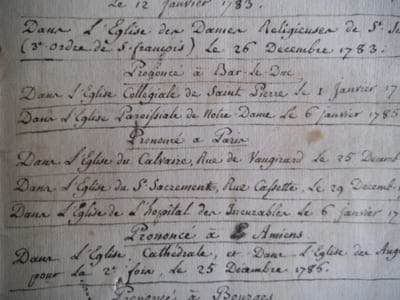 le 12 janvier 1783.
Dans L'Eglise des Dames Religieuses de St.
(3e. Ordre de S. françois) Le 26 Decembre 1783.
à Bar-le-Duc
Dans L'Eglise Collégiale de Saint Pierre le 1 Janvier 17
Dans L'Eglise Paroissiale de Notre Dame Le 6 janvier 1785
Prononcé a Paris
Dans L'Eglise du Calvaire, Rue de Vaugirard le 25 Decemb
Dans L'Eglise du St. Sacrement, Rue Cassette, Le 29 Decemb
Dans L'Eglise de L'hopital des Incurables Le 6 janvier 17
Prononcé à Amiens
Dans L'Eglise Cathédrale, et Dans L'Eglise des Aug
pour La 2e. fois, Le 25 Decembre 1786.
Prononcé à Bourges